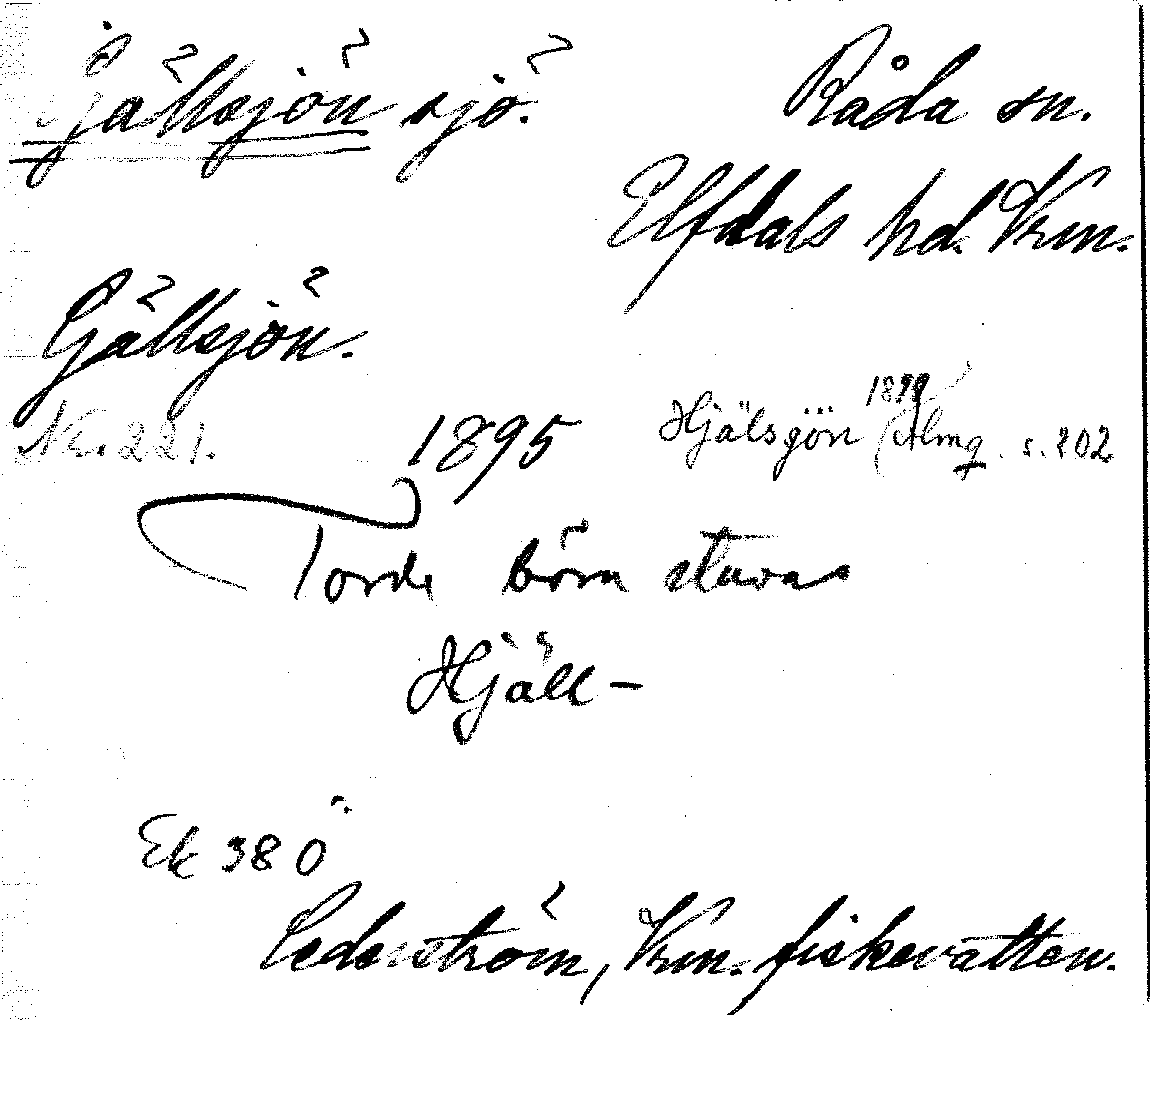 Gjällsjön sjö. Råda sn.
Elfdals hd. Vrm.
Gjällsjön.
Nr. 221. 1895
Hjälsjön (Almq. 1899 s. 202
Torde böra stavas
Hjäll-
Ek 38 Ö
Cederström, Vrm. fiskevatten.